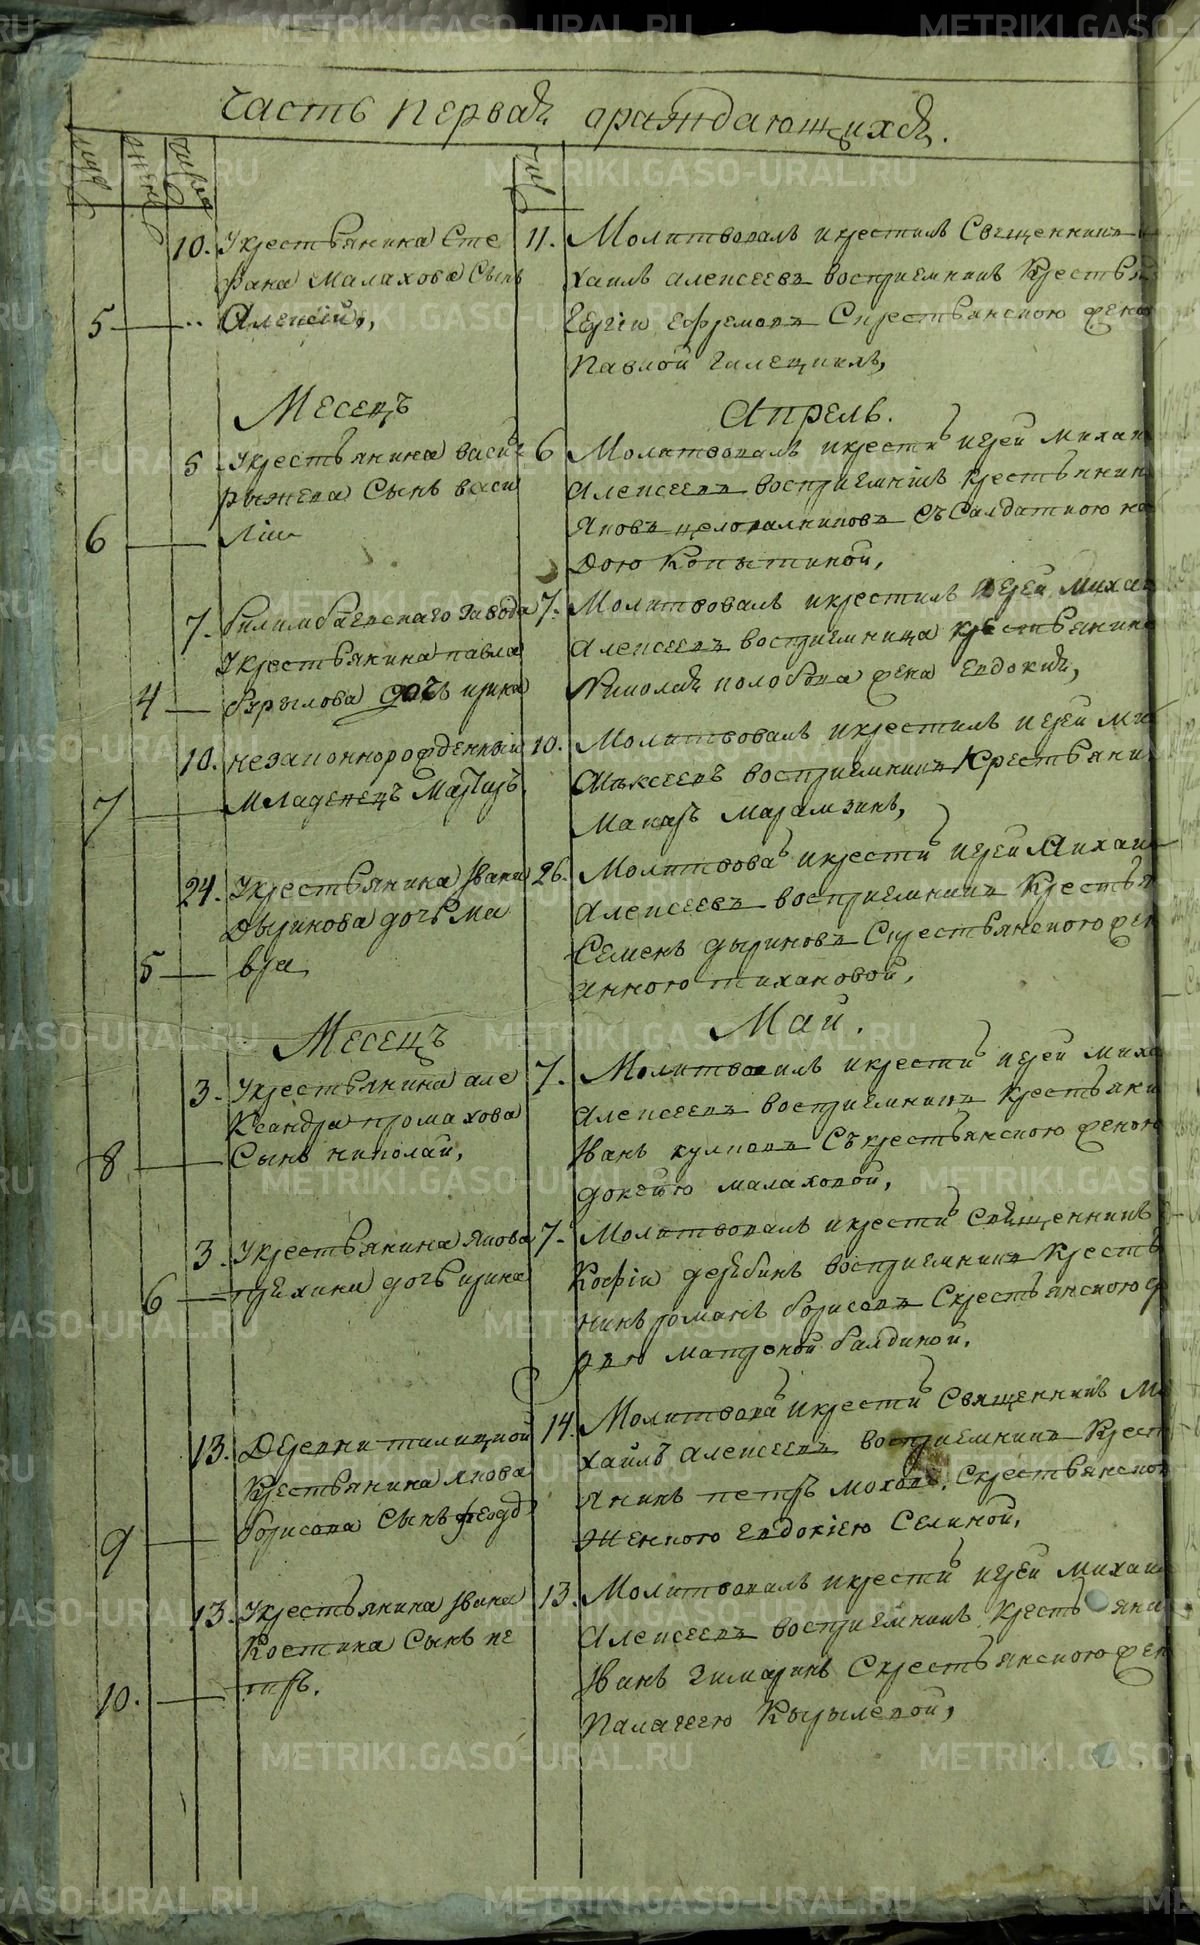 Часть первая ораждающихся.
муж
женс
числа
чис
10. Укрестьянина Сте
фана Малахова Сынъ
5 Алексій,
11. Молитвовалъ икрестилъ Священникъ
хаилъ алексеевъ восприемникъ Крестья
Сергіи ефремовъ Скрестьянскою жено
Павлой
Месецъ Апрель.
5 Укрестьянина васи
рыжева Сынъ васи
6 Ліи
6 Молитвовалъ икрести иерей михаи
алексеевъ восприемникъ крестьянин
Яковъ целовалниковъ Съ Салдаткою
дою Копытиной,
7. билимбаевскаго завода
Укрестьянина павла
4 дочь ирина
7. Молитвовалъ икрестилъ иерей михаи
алексеевъ восприемница крестьянина
Николая жена Евдокия,
10. незаконнорожденный
7 младенецъ
10. Молитвовалъ икрестилъ иерей ми
алексеевъ восприемникъ Крестьяни
Макаръ Марамзинъ,
24. Укрестьянина Ивана
Дырикова дочь Ма
5 вра
26. Молитвова икрести иерей Михаи
алексеевъ восприемникъ Крестья
Семенъ дыриковъ Скрестьянскою жен
анною тихановой,
Месецъ Май.
3. Укрестьянина але
Ксандра промахова
8 Сынъ николай,
7. Молитвовалъ икрести иерей миха
алексеевъ восприемникъ крестьяни
Иванъ куликовъ Съкрестьянскою женою
докею малаховой,
3. Укрестьянина якова
6 дочь ирина
7. Молитвовалъ икрести Священникъ
дерябинъ восприемникъ Кресть
нинъ романъ борисовъ Скрестьянскою
Матреной балдиной.
13. Деревни
Крестьянина якова
9 борисова Сынъ феод
14. Молитвова икрести Священникъ Ми
хаилъ алексеевъ восприемникъ Крест
янинъ петръ моховъ, Скрестьянской
женкою евдокіею Селиной,
13. Укрестьянина Ивана
Костина Сынъ пе
10. тръ.
13. Молитвовалъ икрести иерей михаи
алексеевъ восприемникъ Крестьяни
Иванъ Скрестьянскою жен
Палагеею
METRIKI.GASO-URAL.RU